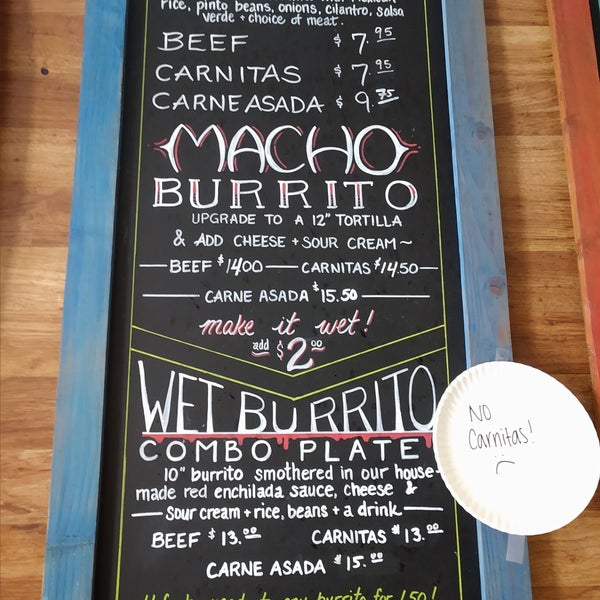 rice, pinto beans, onions, cilantro, salsa
verde + choice of meat.
BEEF $7.95
CARNITAS $7.95
CARNE ASADA $9.75
MACHO
BURRITO
UPGRADE TO A 12" TORTILLA
& ADD CHEESE + SOUR CREAM~
BEEF $14.00 — CARNITAS $14.50
CARNE ASADA $15.50
make it wet!
add $2.00
WET BURRITO
COMBO PLATE
10" burrito smothered in our house-
made red enchilada sauce, cheese &
sour cream + rice, beans + a drink
BEEF $13.00 CARNITAS $13.00
CARNE ASADA $15.00
any burrito for 1.50!
NO
Carnitas!
:(